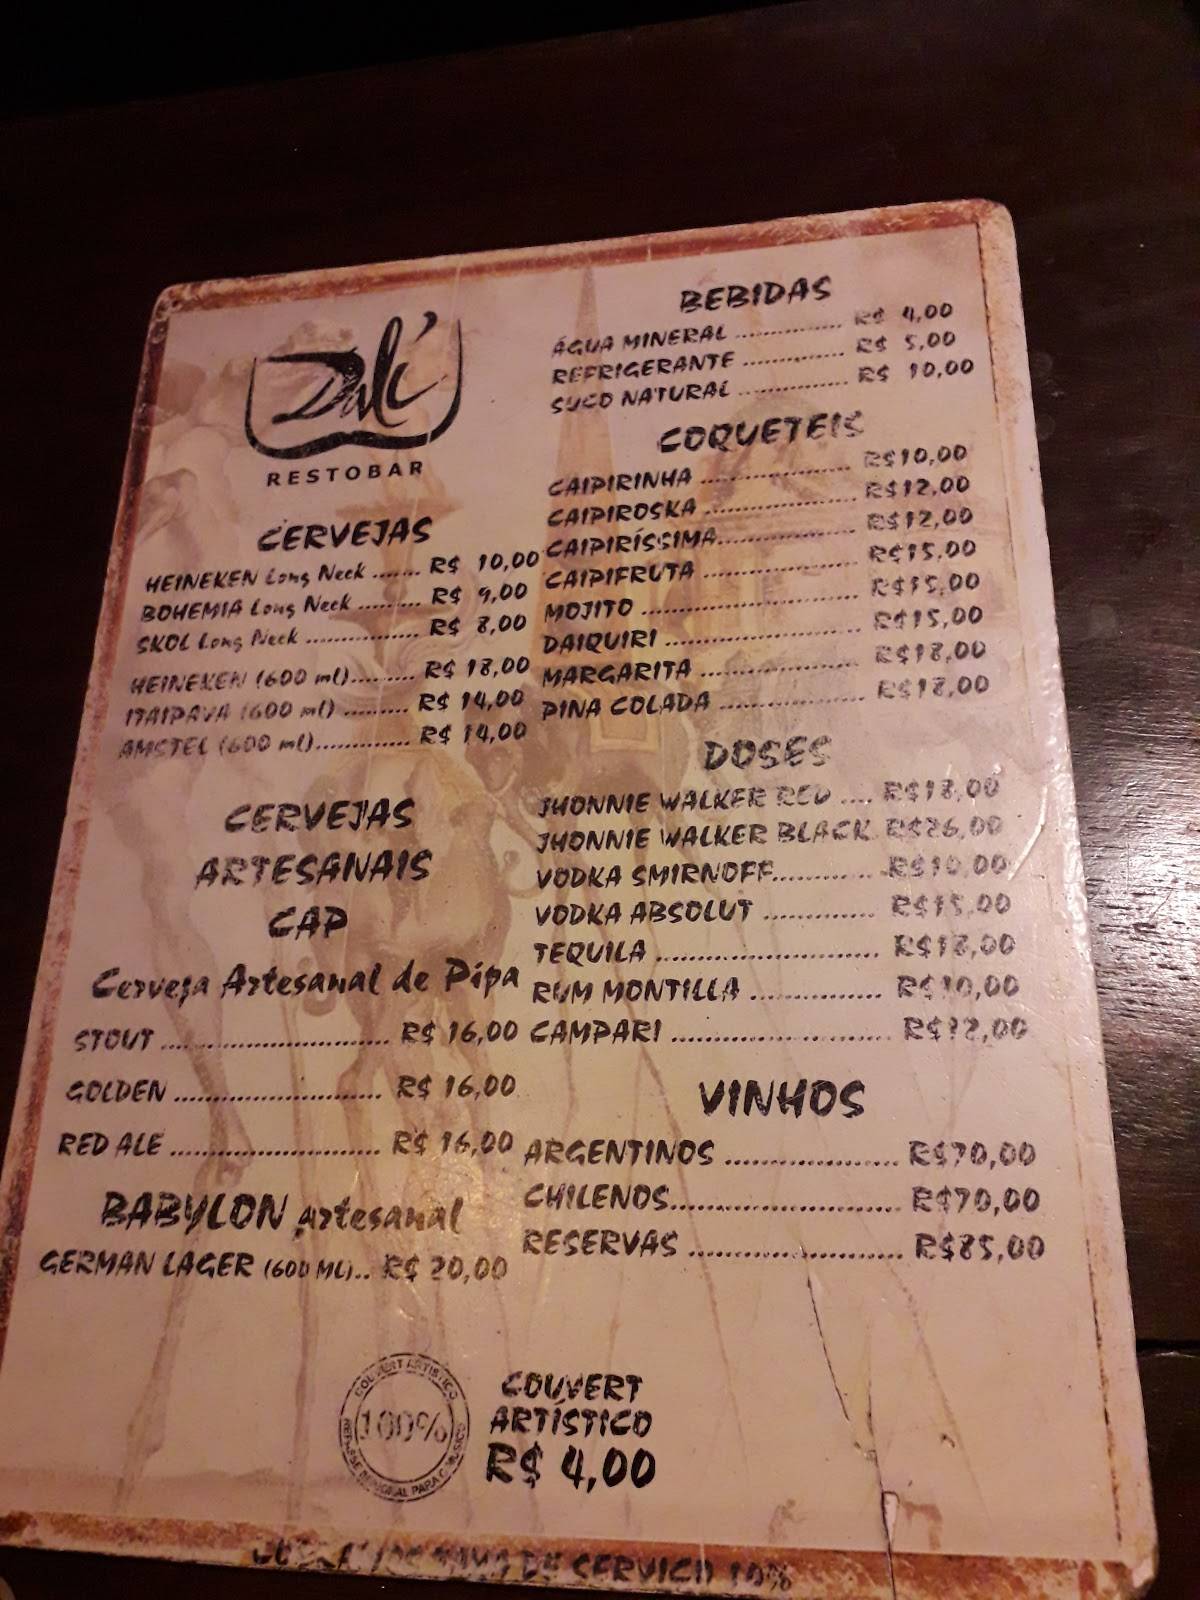 Dalí
RESTOBAR
CERVEJAS
HEINEKEN Long Neck ....... R$ 10,00
BOHEMIA Long Neck ......... R$ 9,00
SKOL Long Neck ................ R$ 8,00
HEINEKEN (600 ml)......... R$ 18,00
ITAIPAVA (600 ml) ......... R$ 14,00
AMSTEL (600 ml)............. R$ 14,00
CERVEJAS
ARTESANAIS
CAP
Cerveja Artesanal de Pipa
STOUT ............................... R$ 16,00
GOLDEN ............................ R$ 16,00
RED ALE ............................ R$ 16,00
BABYLON artesanal
GERMAN LAGER (600 ML).. R$ 20,00
BEBIDAS
ÁGUA MINERAL .............. R$ 4,00
REFRIGERANTE ............. R$ 5,00
SUCO NATURAL .............. R$ 10,00
COQUETEIS
CAIPIRINHA .................. R$10,00
CAIPIROSKA .................. R$12,00
CAIPIRÍSSIMA.................. R$12,00
CAIPIFRUTA .................. R$15,00
MOJITO ........................... R$15,00
DAIQUIRI ........................ R$15,00
MARGARITA ................... R$18,00
PINA COLADA ................. R$18,00
DOSES
JHONNIE WALKER RED .... R$18,00
JHONNIE WALKER BLACK. R$26,00
VODKA SMIRNOFF............ R$10,00
VODKA ABSOLUT ............. R$15,00
TEQUILA .......................... R$18,00
RUM MONTILLA ............... R$10,00
CAMPARI ......................... R$12,00
VINHOS
ARGENTINOS .................... R$70,00
CHILENOS.......................... R$70,00
RESERVAS ......................... R$85,00
COUVERT ARTISTICO
100%
REPASSE INTEGRAL PARA O MÚSICO
COUVERT
ARTÍSTICO
R$ 4,00
TAXA DE SERVIÇO 10%